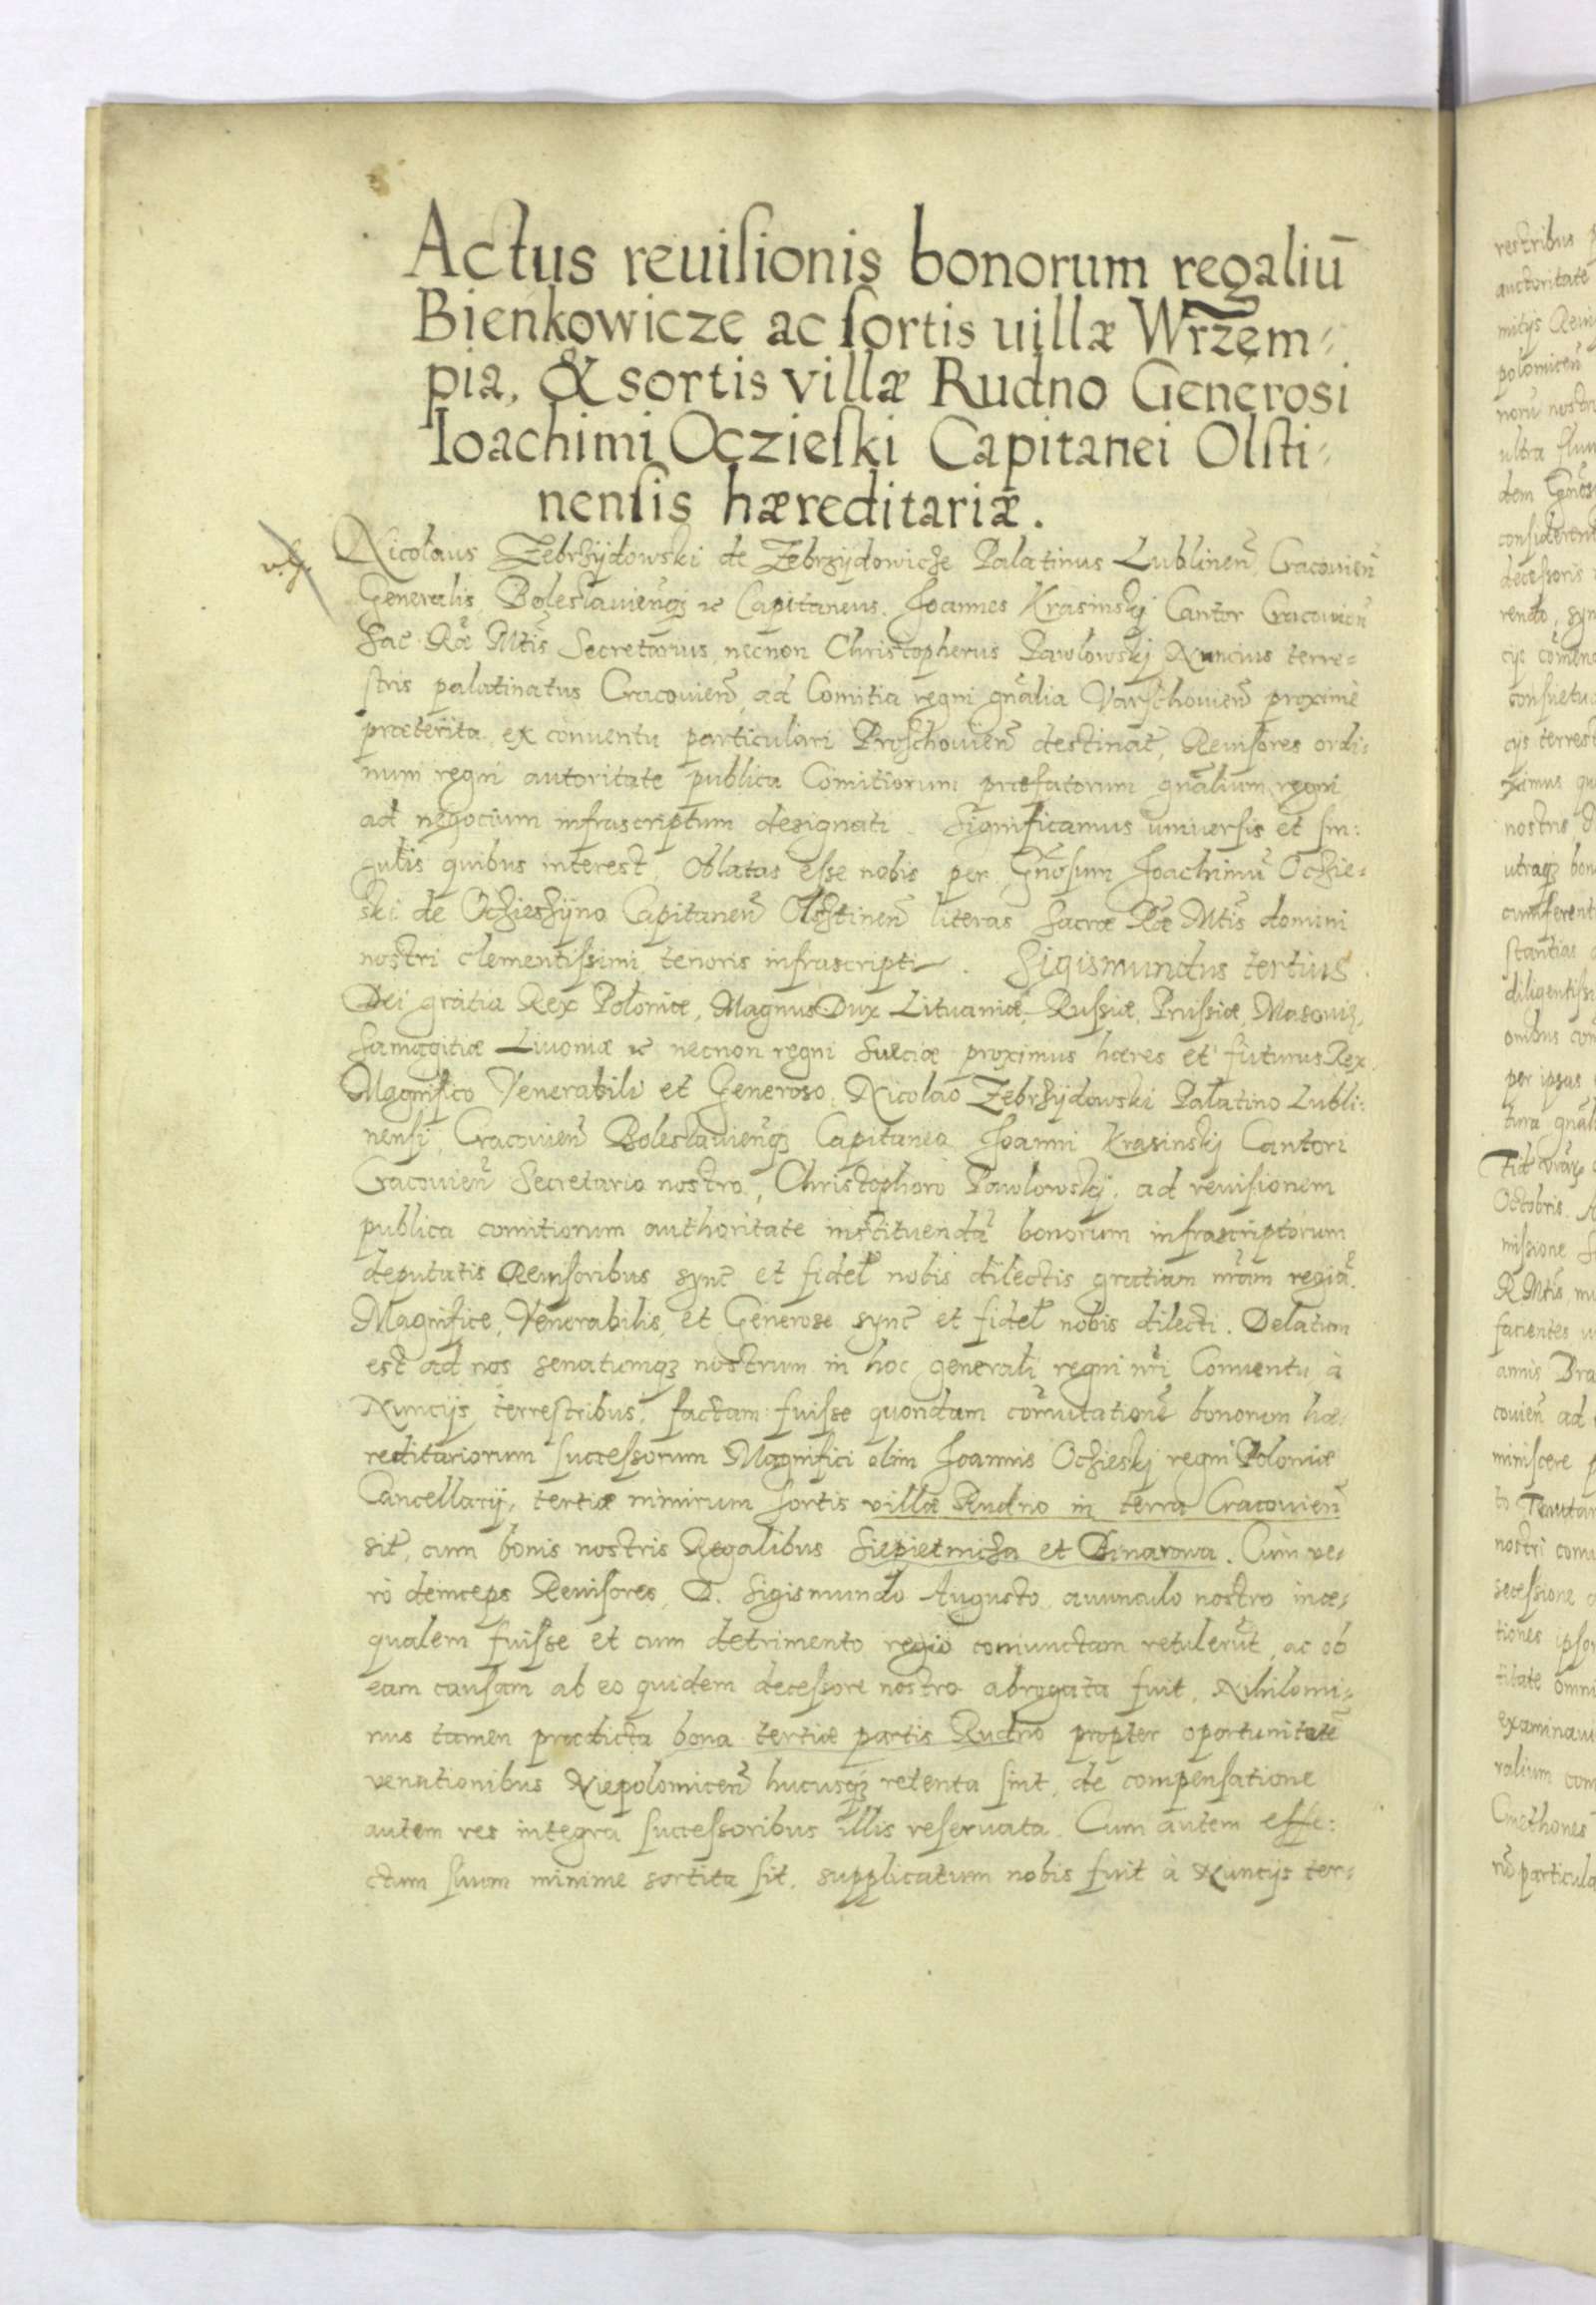 Actus reuisionis bonorum regaliū
Bienkowicze ac sortis uillæ Wrzem-
pia, & sortis villæ Rudno Generosi
Ioachimi Oczieski Capitanei Olsti-
nensis hæreditariæ.
Nicolaus Zebrzÿdowski de Zebrzÿdowicze Palatinus Lublinen̄ Cracouien̄
Generalis, Boleslauien̄qʒ ꝛc Capitaneus. Joannes Krasinskj Cantor Cracouien̄
Sac̄ Ræ Mtis Secretarius, necnon Christopherus Pawlowskj Nuncius terre-
stris palatinatus Cracouien̄, ad Comitia regni gn̄alia Varschouien̄ proximè
præterita ex conuentu particulari Proschouien̄ destinat̄, Reuisores ordi-
num regni autoritate publica Comitiorum præfatorum gn̄alium regni
ad negocium infrascriptum designati. Significamus uniuersis et sin:
gulis quibus interest, Oblatas esse nobis per Gn̄osum Joachimū Oczie-
ski de Oczieszÿno Capitaneū Olschtinen̄ literas Sacræ Ræ Mtis domini
nostri clementissimi tenoris infrascripti. Sigismundus tertius
Dei gratia Rex Poloniæ, Magnus Dux Lituaniæ, Russiæ, Prussiæ, Masouiæ,
Samagitiæ Liuoniæ ꝛc necnon regni Sueciæ proximus hæres et futurus Rex.
Magnifico Venerabili et Generoso, Nicolao Zebrzÿdowski Palatino Lubli:
nensi, Cracouien̄ Boleslauien̄qʒ Capitaneo Joanni Krasinskj Cantori
Cracouien̄ Secretario nostro, Christophoro Pawlowskj, ad reuisionem
publica comitiorum authoritate instituendā bonorum infrascriptorum
deputatis Reuisoribus sync̄ et fidel̄ nobis dilectis gratiam nr̄am regiā.
Magnifice, Venerabilis, et Generose sync̄ et fidel̄ nobis dilecti. Delatum
est ad nos senatumqʒ nostrum in hoc generali regni nr̄i Conuentu à
Nuncijs terrestribus, factam fuisse quondam com̄utationē bonorum hæ-
reditariorum successorum Magnifici olim Joannis Oczieskj regni Poloniæ
Cancellarij, tertiæ nimirum sortis villæ Rudno in terra Cracouien̄
sit̄, cum bonis nostris Regalibus Siepietnicza et Binarowa. Cùm ve-
rò deinceps Reuisores, D. Sigismundo Augusto auunculo nostro inæ-
qualem fuisse et cum detrimento regio coniunctam retulerūt, ac ob
eam causam ab eo quidem decessore nostro abrogata fuit, Nihilomi-
nus tamen prædicta bona tertiæ partis Rudno propter oportunitatē
venationibus Niepolomicen̄ hucusqʒ retenta sint, de compensatione
autem res integra successoribus illis reseruata. Cum autem effe:
ctum suum minime sortita sit, supplicatum nobis fuit à Nuncijs ter-